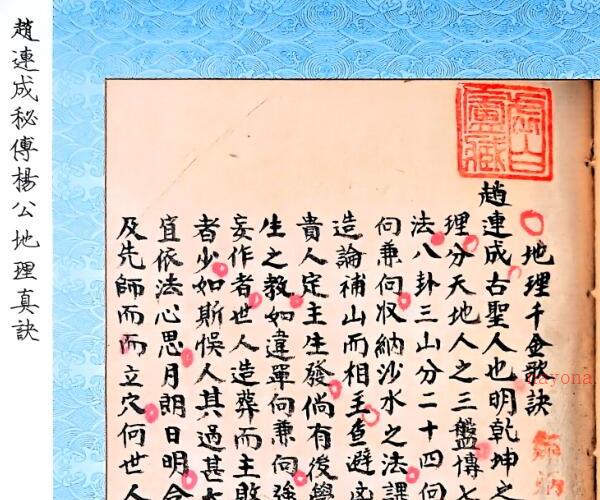 趙連成秘傳楊公地理真訣
地理千金歌訣
趙連成古聖人也明乾坤之
理分天地人之三盤傳七
法八卦三山分二十四向
向兼向收納沙水之法課
造論補山而相主查避凶
貴人定主生發倘有後學
生之教如違單向兼向強
妄作者世人造葬而主敗
者少如斯悞人其過甚大
宜依法心思月朗日明合
及先師而而立穴何世人
虛白
盧藏
nayona.